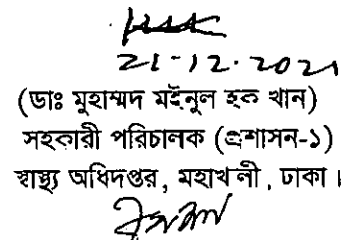 21-12-2021
(ডাঃ মুহাম্মদ মইনুল হক খান)
সহকারী পরিচালক (প্রশাসন-১)
স্বাস্থ্য অধিদপ্তর, মহাখালী, ঢাকা।